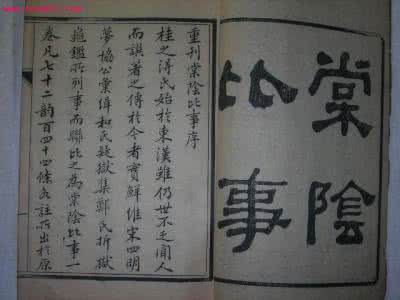 棠陰
比事
重刊棠陰比事序
桂之得氏始於東漢雖仍世不乏聞人
而譔著之傳於今者實鮮維宋四明
夢協公彙緝和氏疑獄集鄭氏折獄
龜鑑所列事而聯比之為棠陰比事一
卷凡七十二韻百四十四條各註所出於原